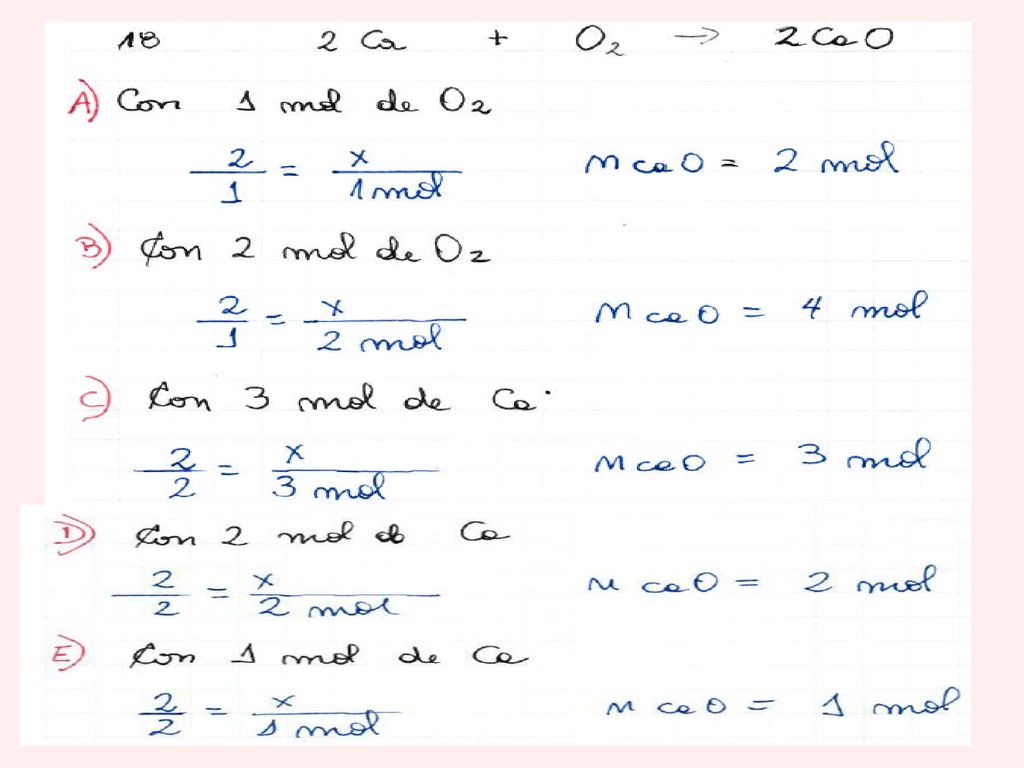 18 2 Ca + O2 → 2 CaO
A) Con 1 mol de O2
2/1 = x/1 mol n CaO = 2 mol
B) Con 2 mol de O2
2/1 = x/2 mol n CaO = 4 mol
C) Con 3 mol de Ca.
2/2 = x/3 mol n CaO = 3 mol
D) Con 2 mol de Ca
2/2 = x/2 mol n CaO = 2 mol
E) Con 1 mol de Ca
2/2 = x/1 mol n CaO = 1 mol